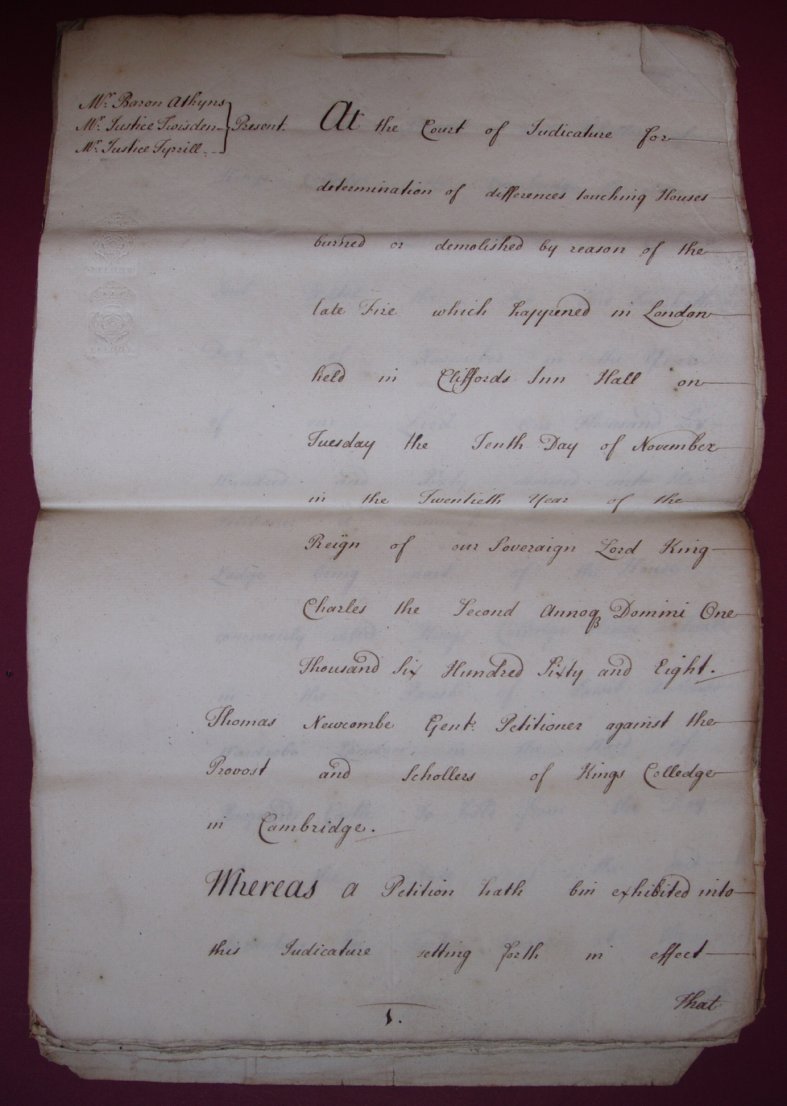 Mr. Baron Atkyns
Mr. Justice Twisden
Mr. Justice Tyrrill
Present.
At the Court of Judicature for
determination of differences touching Houses
burned or demolished by reason of the
late Fire which happened in London
held in Cliffords Inn Hall on
Tuesday the Tenth Day of November
in the Twentieth Year of the
Reign of our Soveraign Lord King
Charles the Second Annoq Domini One
Thousand Six Hundred Sixty and Eight.
Thomas Newcombe Gent. Petitioner against the
Provost and Schollers of Kings Colledge
in Cambridge.
Whereas a Petition hath bin exhibited into
this Judicature setting forth in effect
That
1.